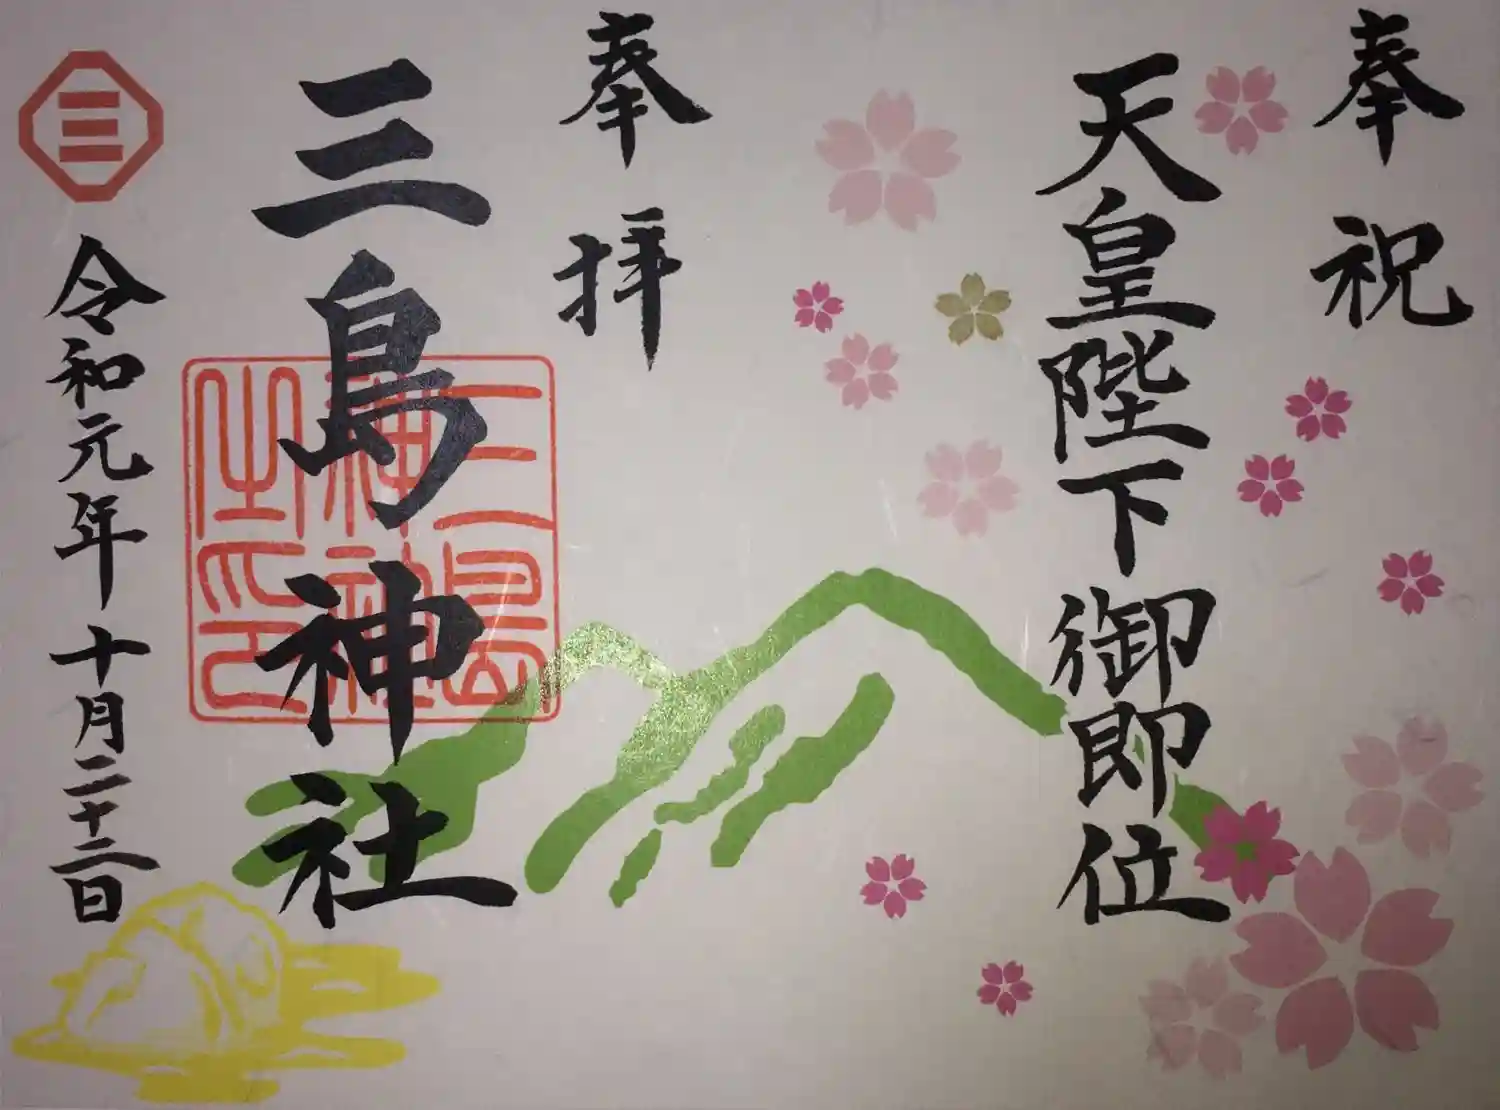 奉祝
天皇陛下御即位
奉拝
三島神社
三島
神社
之印
三
令和元年十月二十二日